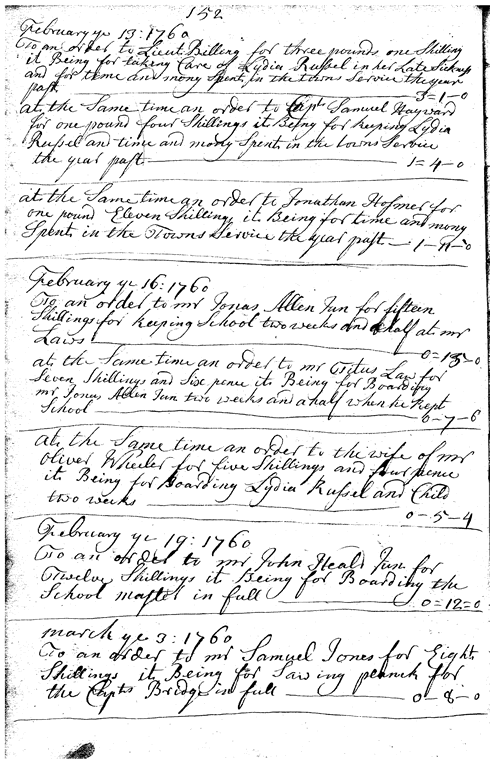 152
February ye 13: 1760
To an order to Lieut Billing for three pounds one Shilling
it Being for taking Care of Lydia Russel in her Late Sickness
and for time and mony Spent in the towns Service the year
past 3-1-0
at the Same time an order to Capt Samuel Hayward
for one pound four Shillings it Being for keeping Lydia
Russel and time and mony Spent in the towns Service
the year past 1=4-0
at the Same time an order to Jonathan Hosmer for
one pound Eleven Shillings it Being for time and mony
Spent in the Towns Service the year past 1-11-0
February ye 16: 1760
To an order to mr Jonas Allen Jun for fifteen
Shillings for keeping School two weeks and a half at mr
Laws 0=15-0
at the Same time an order to mr Titus Law for
Seven Shillings and Six pence it Being for Boarding
mr Jonas Allen Jun two weeks and a half when he kept
School 0-7-6
at the Same time an order to the wife of mr
Oliver Wheeler for five Shillings and four pence
it Being for Boarding Lydia Russel and Child
two weeks 0-5-4
February ye 19: 1760
To an order to mr John Heald Jun for
Twelve Shillings it Being for Boarding the
School master in full 0=12=0
march ye 3: 1760
To an order to mr Samuel Jones for Eight
Shillings it Being for Sawing for
the Capts Bridge in full 0-8-0